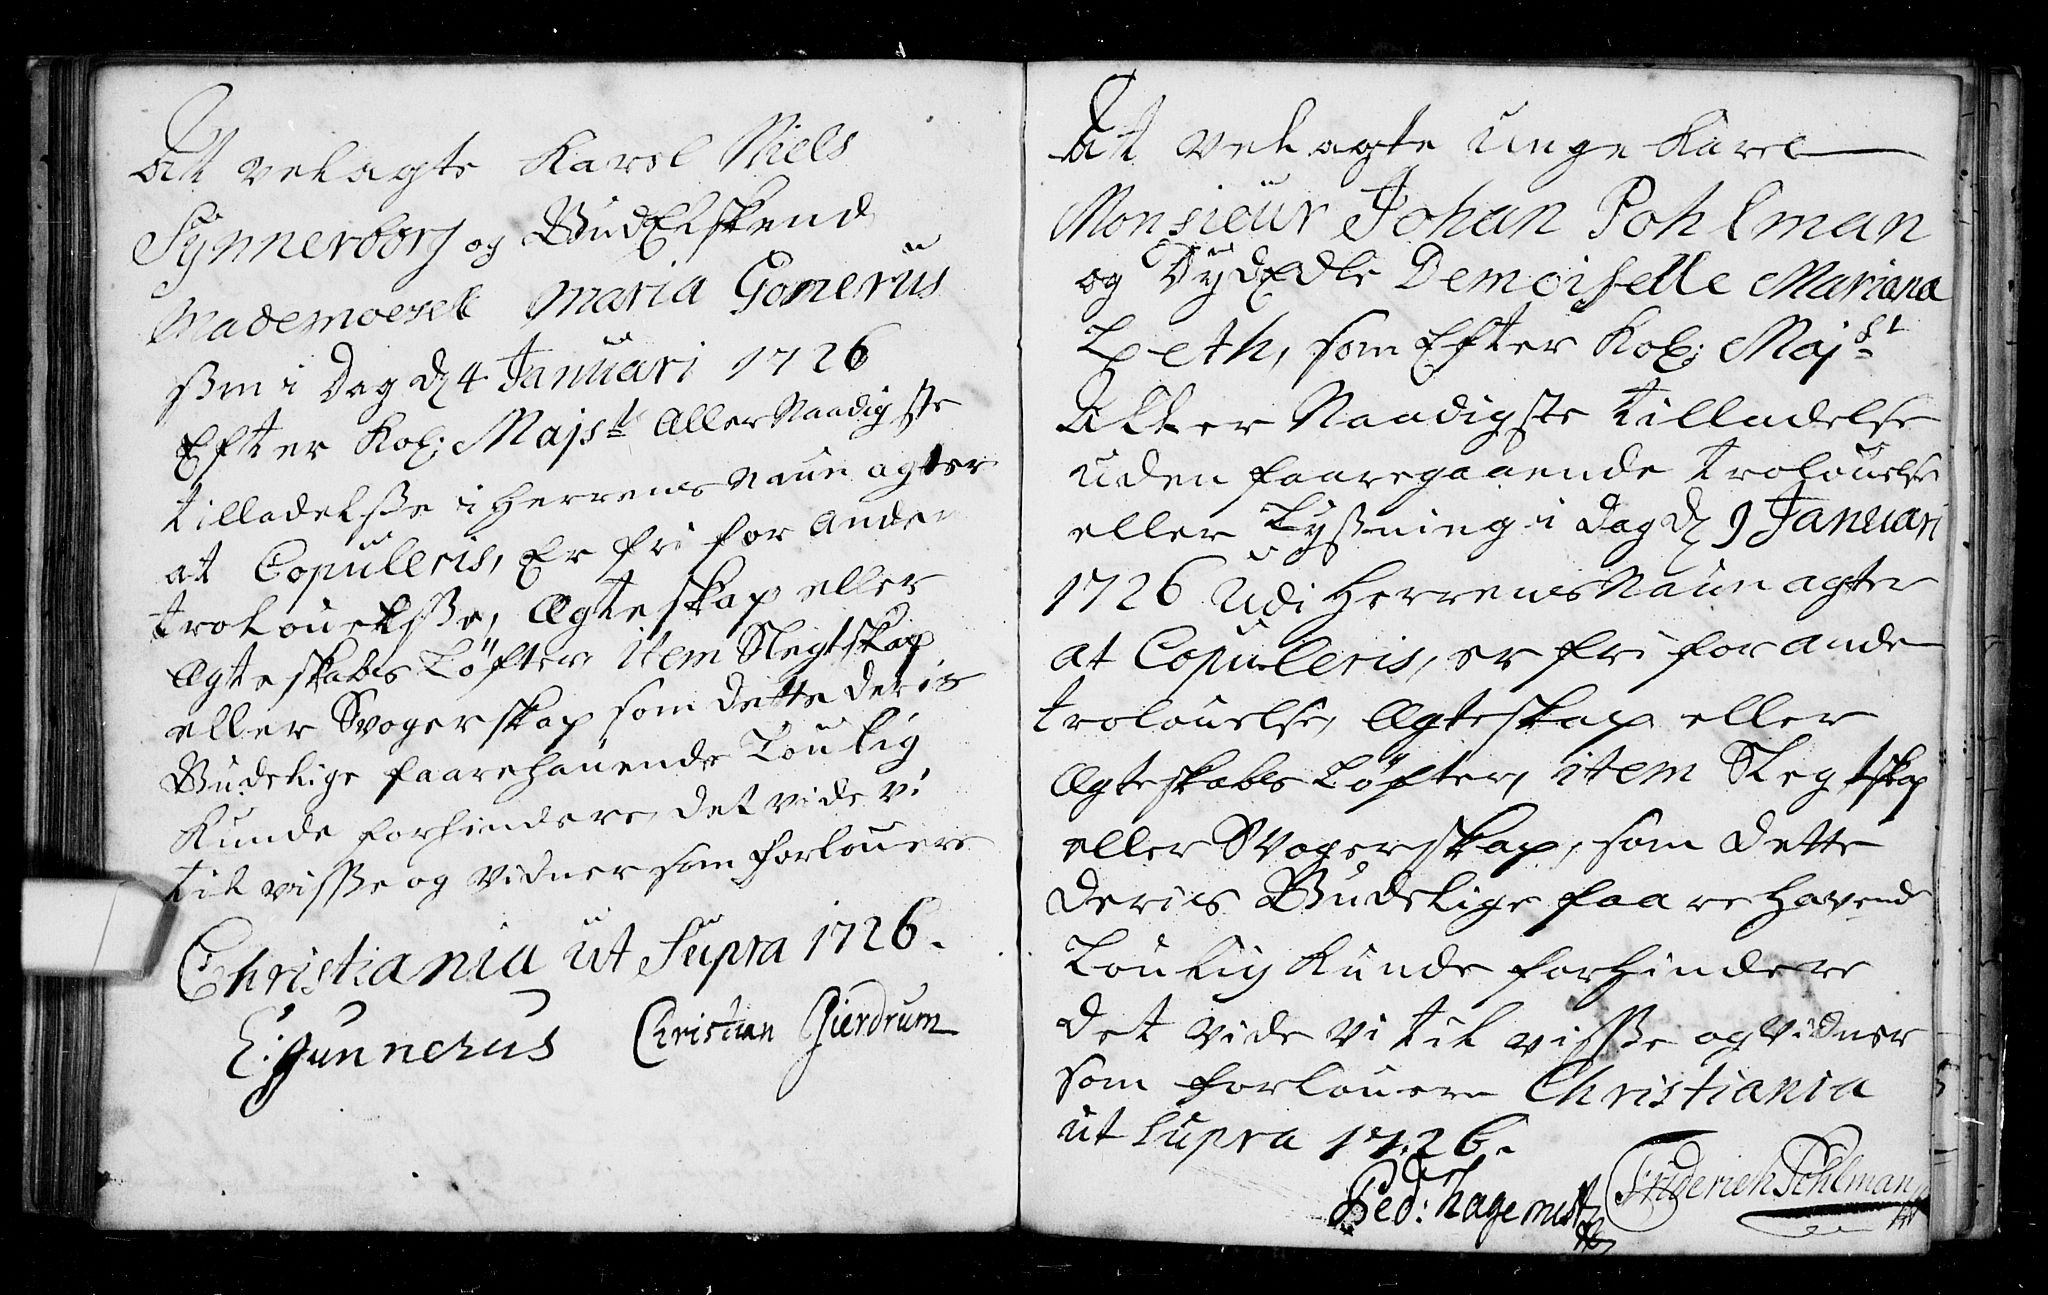 At velagte Karl Niels
Synnerborg og GudElskend
Mademoesele Maria Gonerus
som i Dag d 4 Januari 1726
Efter Kol: Majst AllerNaadigste
tilladelsse i Herrens Naun agter
at Copuleris, Er fri for Anden
trolouelsse, Ægteskap eller
Ægteskabs Løfter, item Slegtskap
eller Svogerskap som dette deris
Gudelige faarehauende Loulig
Kunde forhindere, det vide vi
til visse og vidner som forlouere
Christiania ut Supra 1726.
E: Gunnerus Christian Gierdrum
At velagte unge Karl
Monsieur Johan Pohlman
og DydEdle Demoiselle Mariana
Leth, som Efter Kol: Majst
Aller Naadigste tilladelse
uden faaregaaende trolouelse
eller Lyssning i Dag d 9 Januari
1726 Udi Herrens Naun agter
at Copuleris, er fri for ande
trolouelse, Ægteskap eller
Ægteskabs Løfter, item Slegtskap
eller Svogerskap, som dette
deris Gudelige faarehavende
Loulig Kunde forhindere
det vide vi til visse og vidner
som forlouere Christiania
ut Supra 1726.
Ped: Hagemest Friderich Pohlman